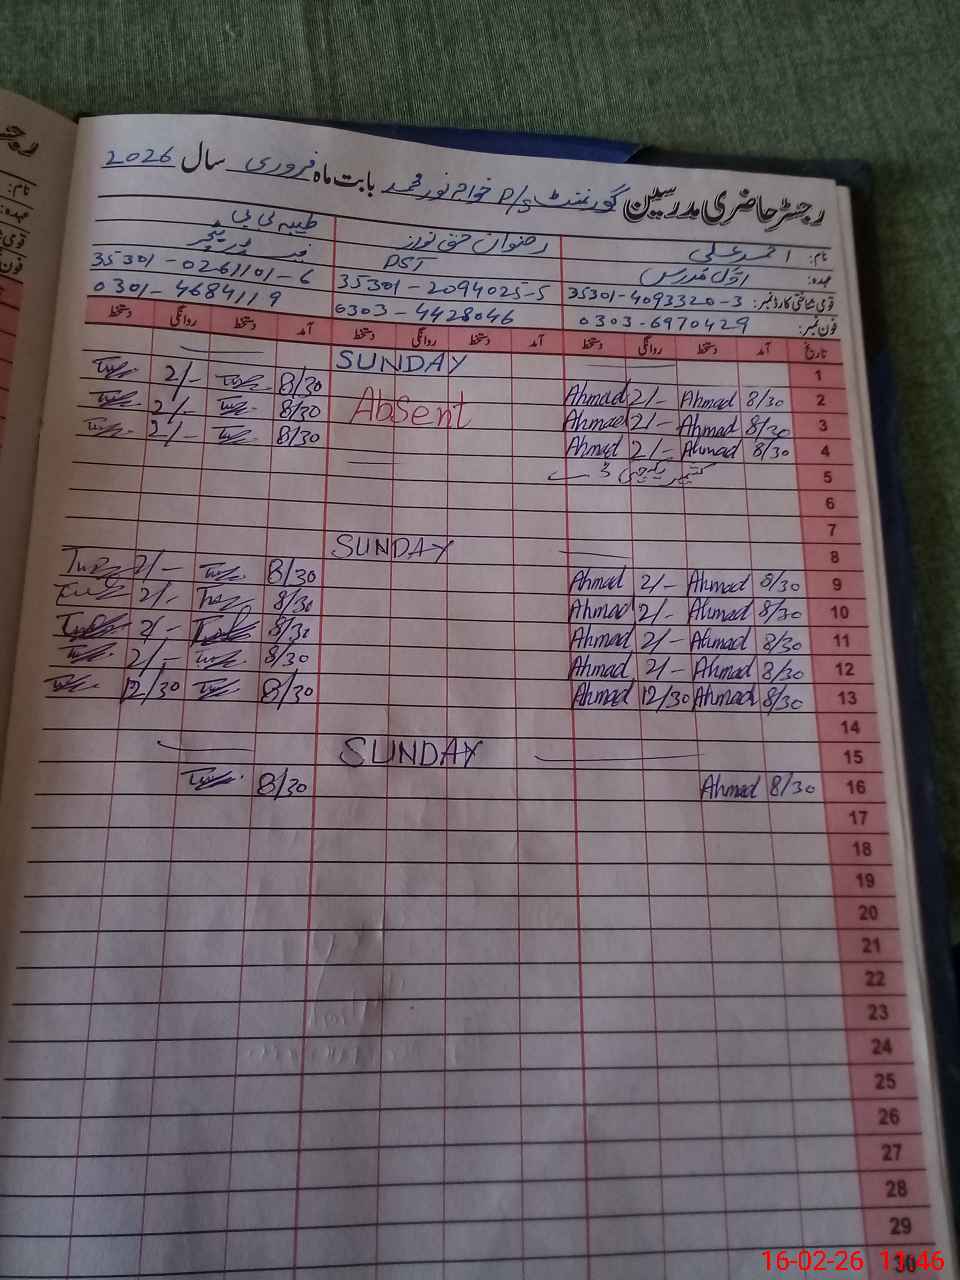 رجسٹر حاضری مدرسین گورنمنٹ P/S خواجہ نور محمد بابت ماہ فروری سال 2026
نام: احمد علی رضوان حق نواز طیبہ بی بی
عہدہ: اوّل مدرس PST
قومی شناختی کارڈ نمبر: 35301-4093320-3 35301-2094025-5 35301-0261101-6
فون نمبر: 0303-6970429 0303-4428046 0301-4684119
تاریخ آمد دستخط روانگی دستخط آمد دستخط روانگی دستخط آمد دستخط روانگی دستخط
1 SUNDAY
2 8/30 Ahmad 2/- Ahmad 8/30 2/-
3 8/30 Ahmad 2/- Ahmad Absent 8/30 2/-
4 8/30 Ahmad 2/- Ahmad 8/30 2/-
5 کشمیر یکجہتی ڈے
6
7
8 SUNDAY
9 8/30 Ahmad 2/- Ahmad 8/30 2/-
10 8/30 Ahmad 2/- Ahmad 8/30 2/-
11 8/30 Ahmad 2/- Ahmad 8/30 2/-
12 8/30 Ahmad 2/- Ahmad 8/30 2/-
13 8/30 Ahmad 12/30 Ahmad 8/30 12/30
14
15 SUNDAY
16 8/30 Ahmad 8/30
17
18
19
20
21
22
23
24
25
26
27
28
29
30
16-02-26 11:46
رجسٹر
نام:
عہدہ:
قومی
فون